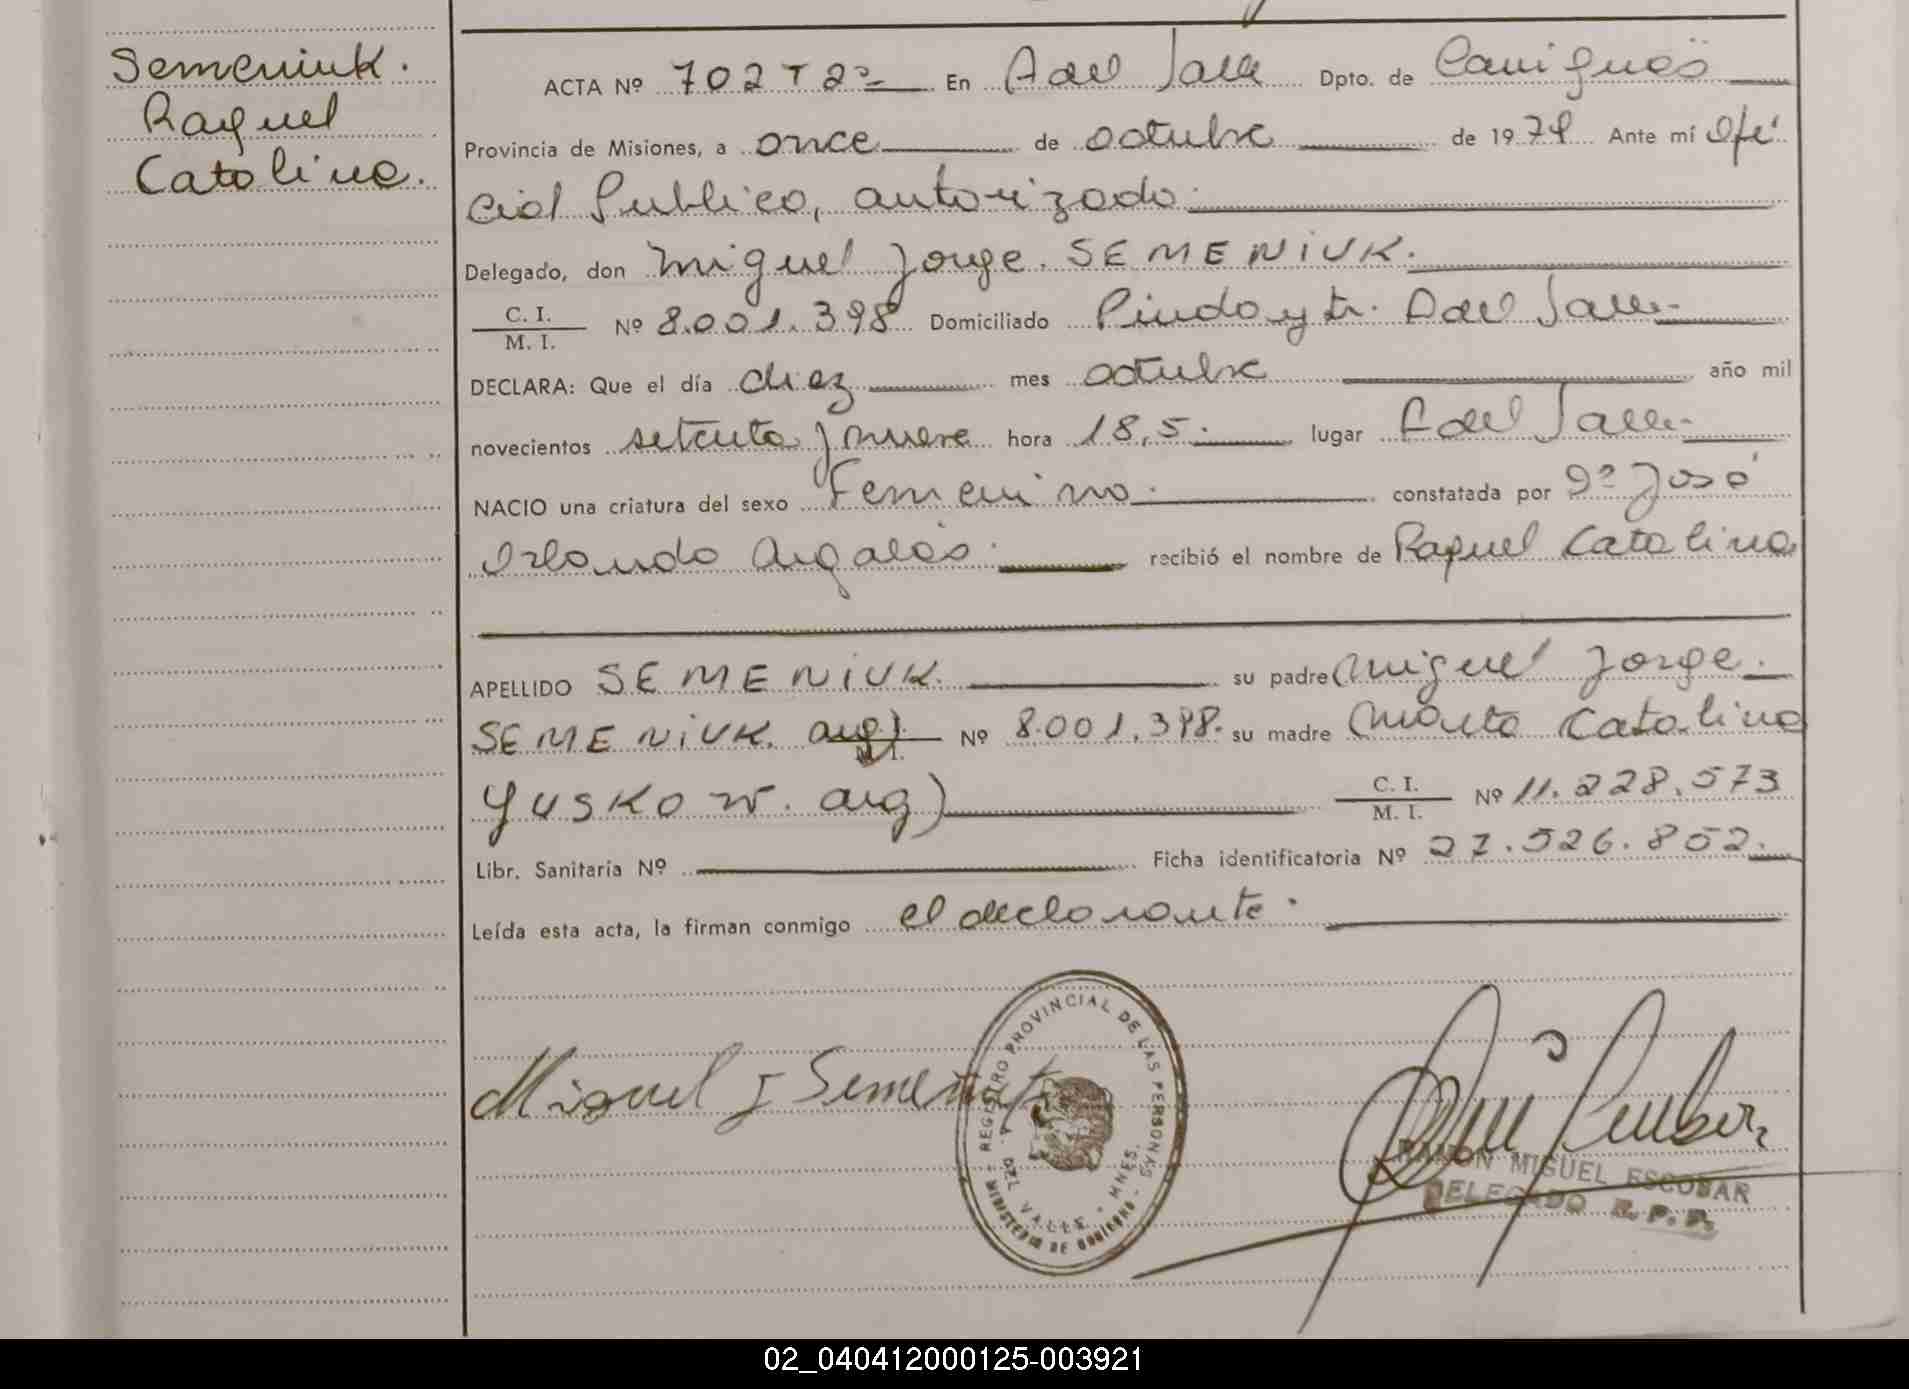 Semeniuk.
Raquel
Catalina.
ACTA Nº 702 T 2º En A del Valle Dpto. de Cainguás
Provincia de Misiones, a once de octubre de 1979 Ante mí Ofi
cial Publico, autorizado.
Delegado, don Miguel Jorge. SEMENIUK.
C. I.
M. I. Nº 8.001.398 Domiciliado Pindaytí. A del Valle.
DECLARA: Que el día diez mes octubre año mil
novecientos setenta y nueve hora 18,5. lugar A del Valle.
NACIO una criatura del sexo Femenino. constatada por Dº José
Orlando Argalas. recibió el nombre de Raquel Catalina
APELLIDO SEMENIUK. su padre Miguel Jorge.
SEMENIUK. arg). Nº 8.001.398. su madre Marta Catalina
YUSKOW. arg) C. I.
M. I. Nº 11.228.573
Libr. Sanitaria Nº Ficha identificatoria Nº 27.526.852.
Leída esta acta, la firman conmigo el declarante.
Miguel J Semeniuk
REGISTRO PROVINCIAL DE LAS PERSONAS
A. DEL VALLE - MNES.
MINISTERIO DE GOBIERNO
RAMON MIGUEL ESCOBAR
DELEGADO R.P.P.
02_040412000125-003921